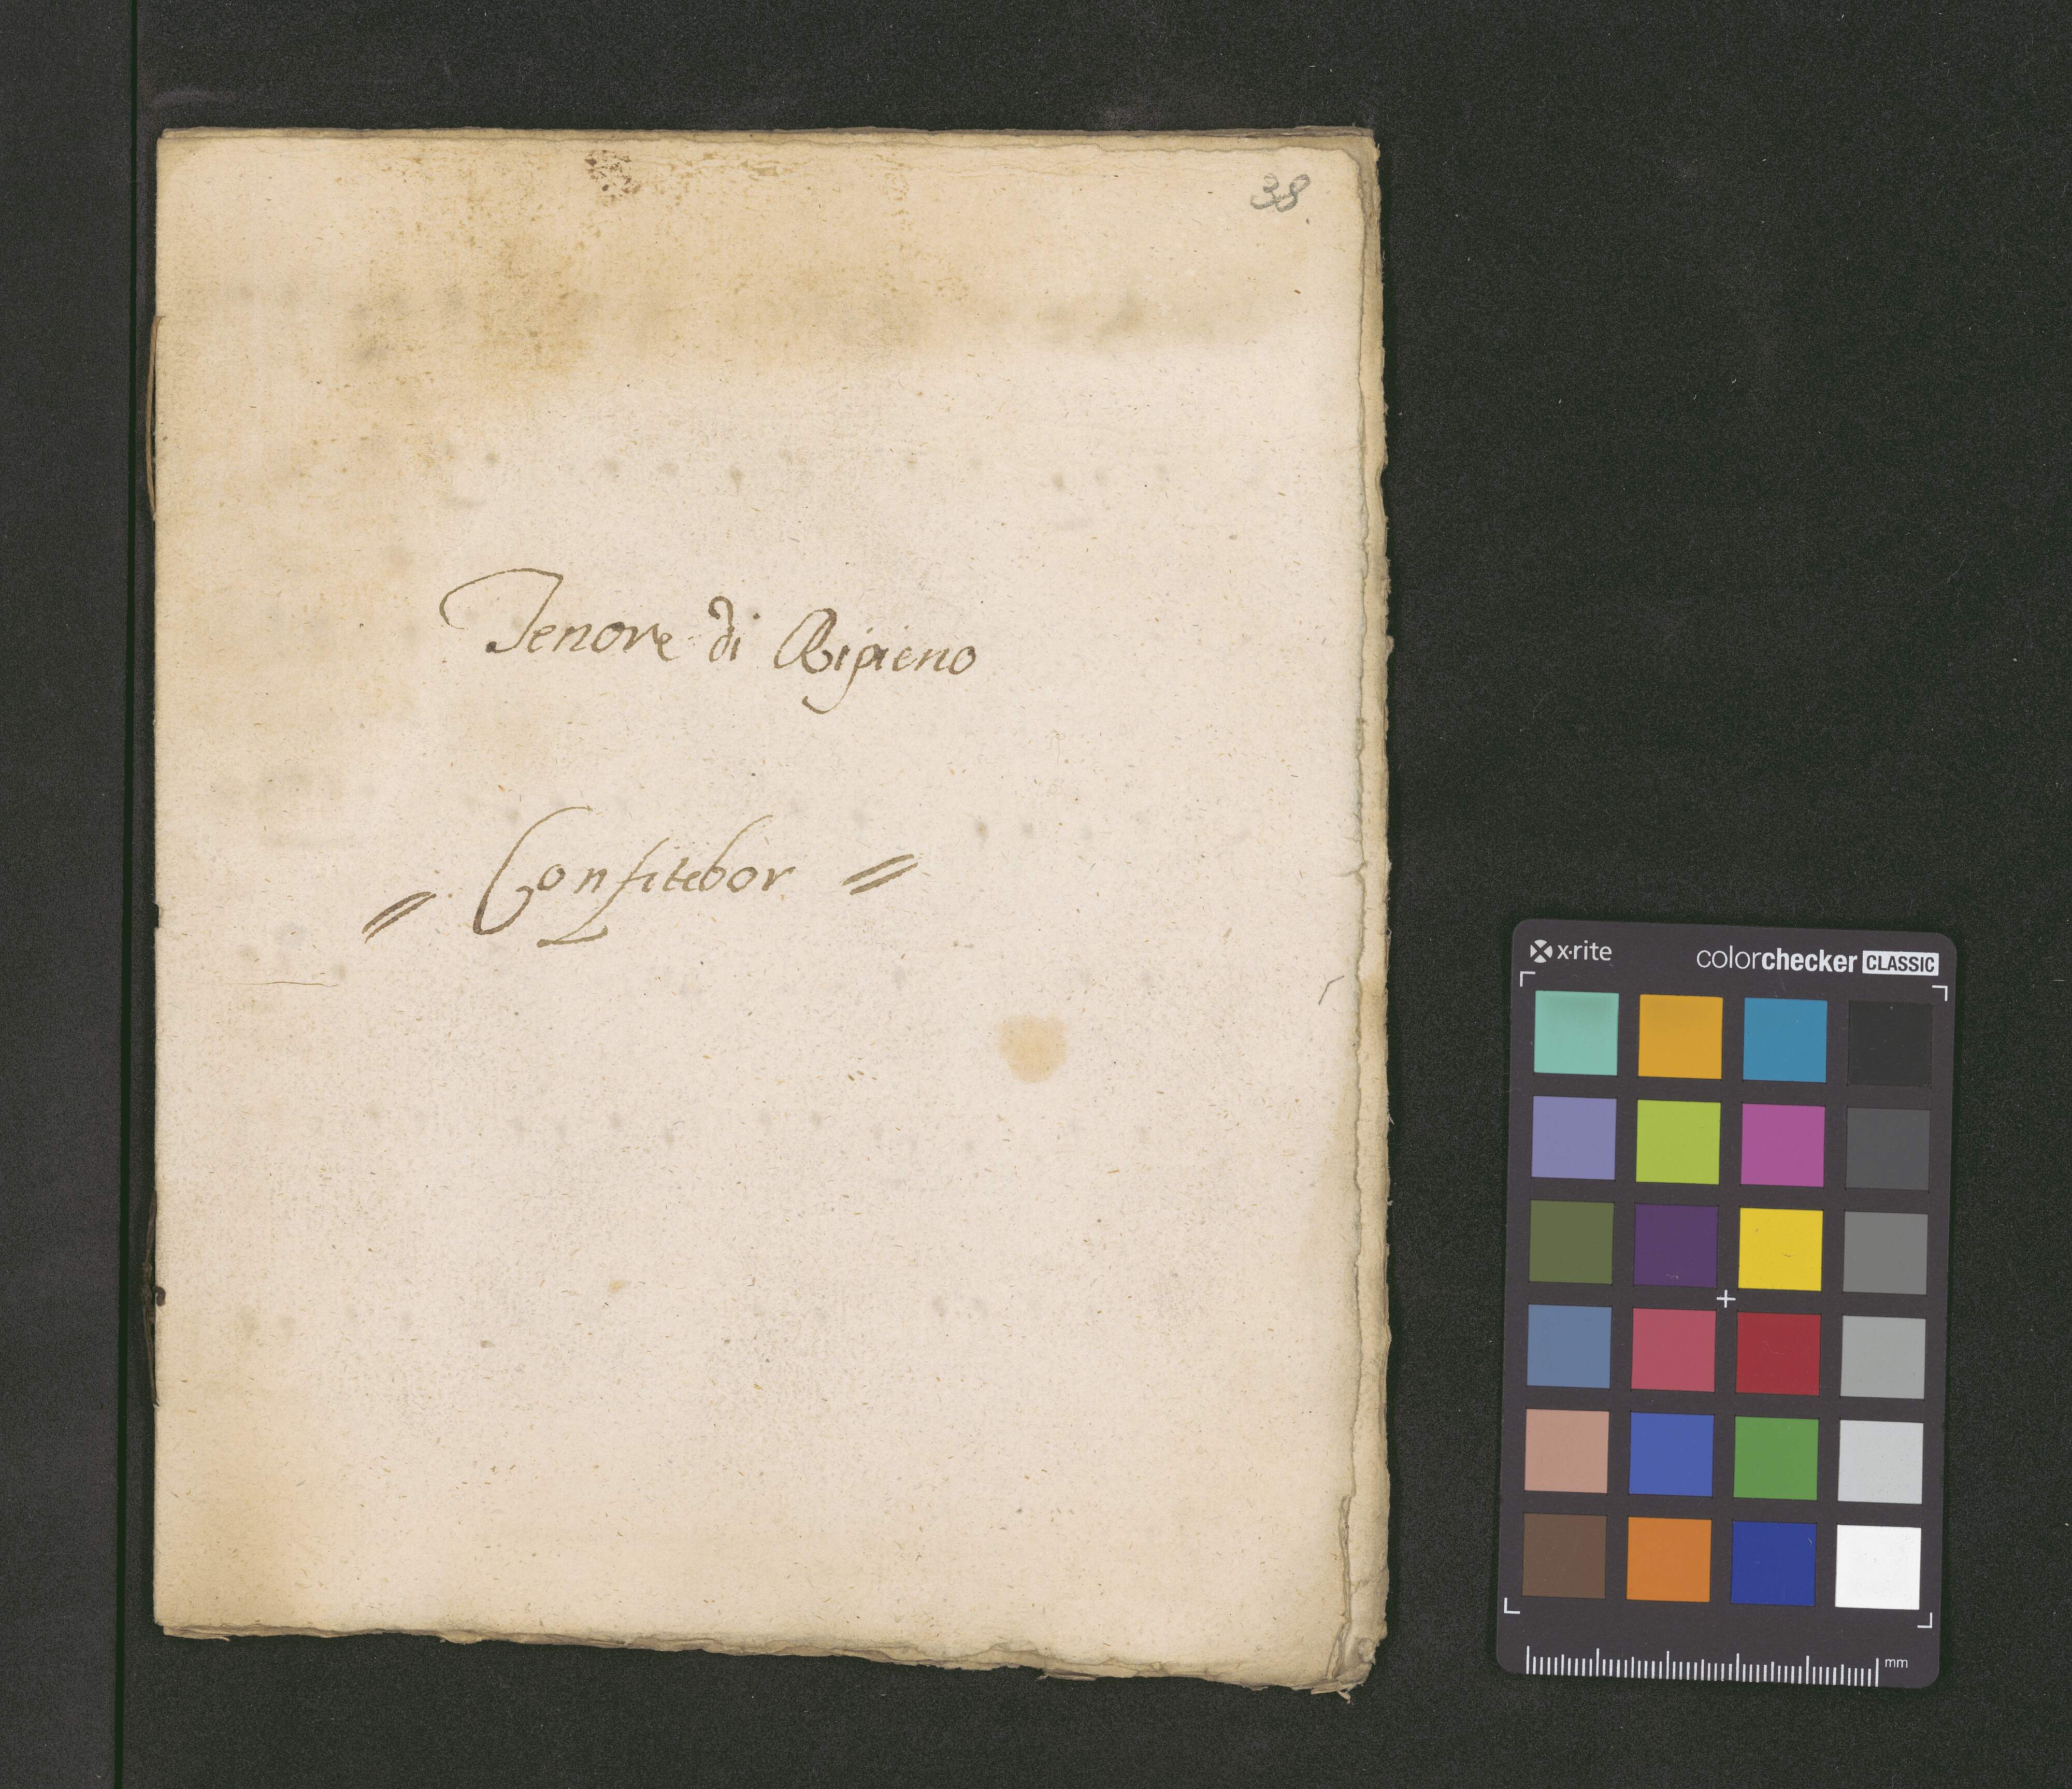 38.
Tenore di Ripieno
= Confitebor =
x·rite
colorchecker CLASSIC
mm